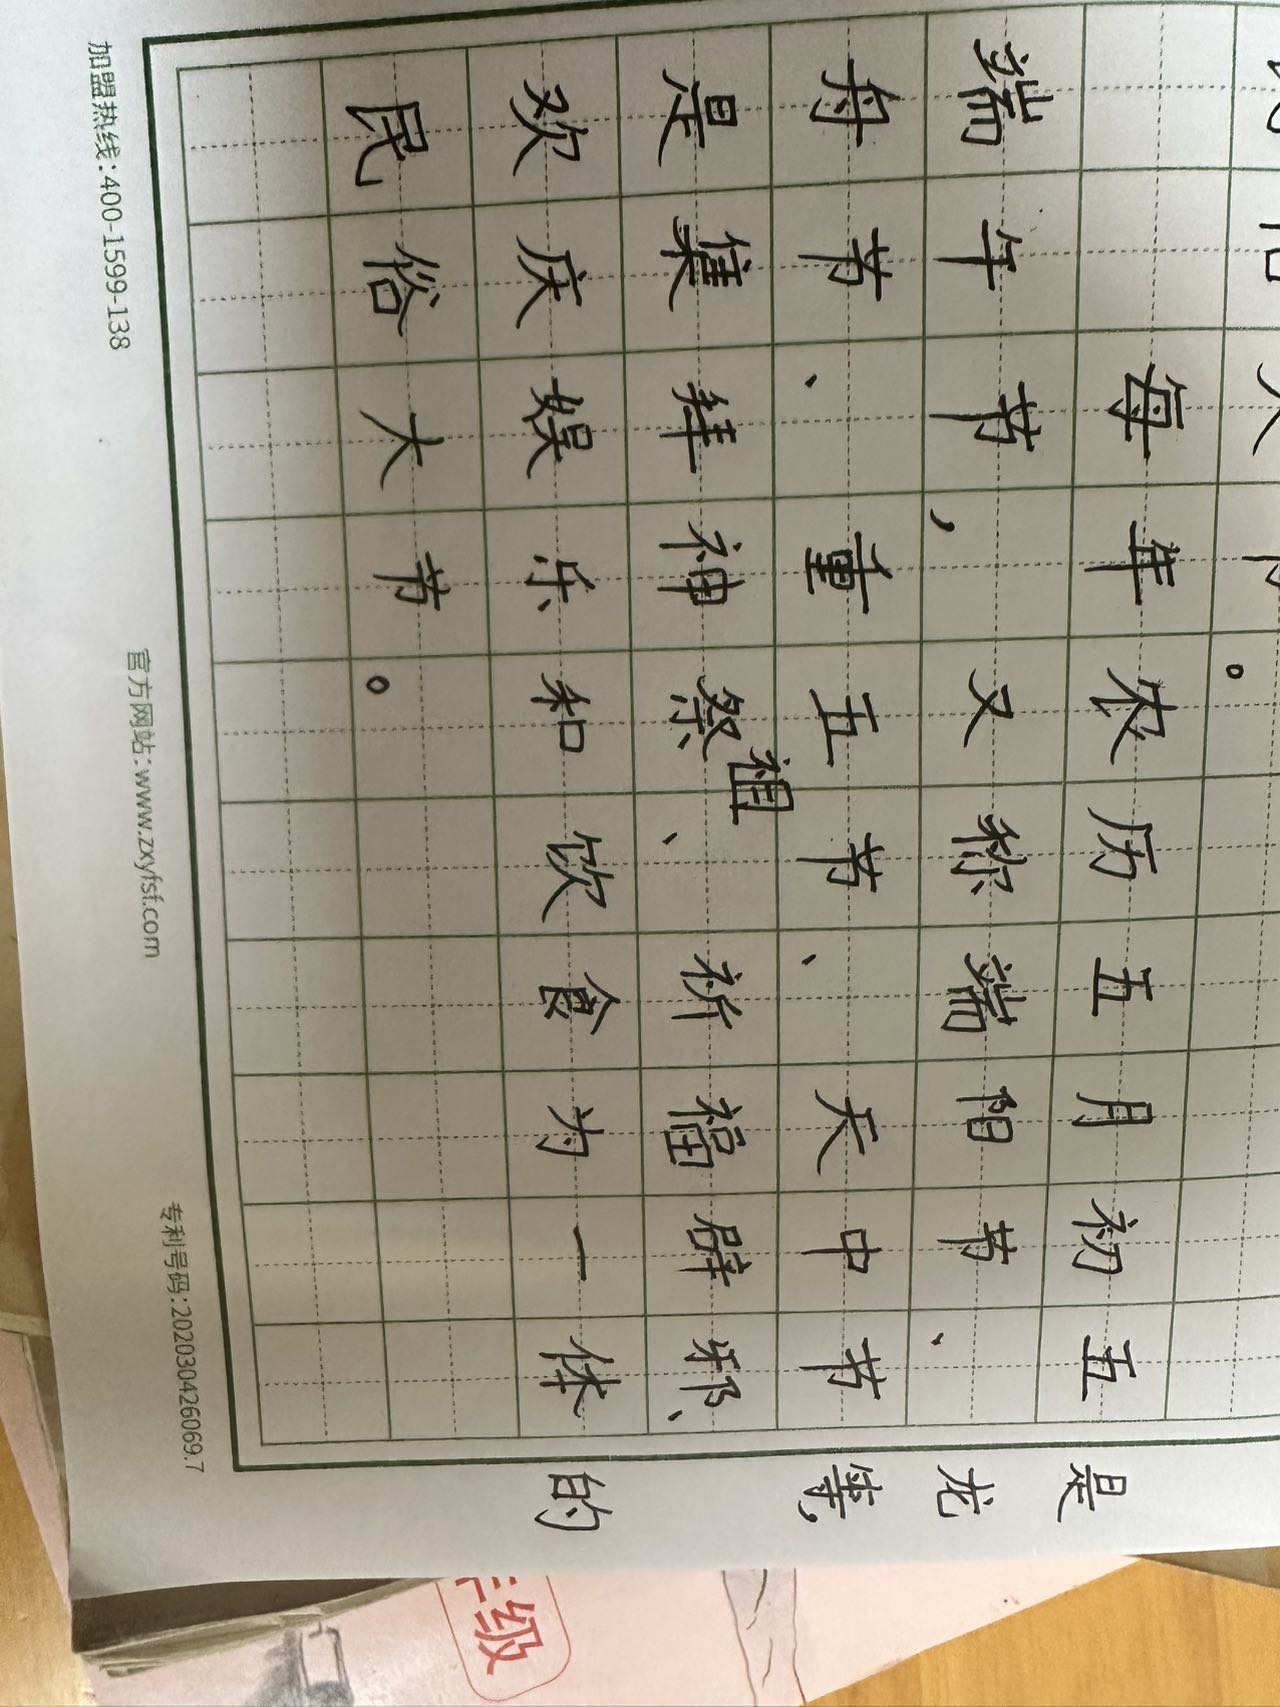 每年农历五月初五是
端午节，又称端阳节、龙
舟节、重五节、天中节等，
是集拜神祭祖、祈福辟邪、
欢庆娱乐和饮食为一体的
民俗大节。
加盟热线：400-1599-138
官方网站：www.zxyfsf.com
专利号码：202030426069.7
年级